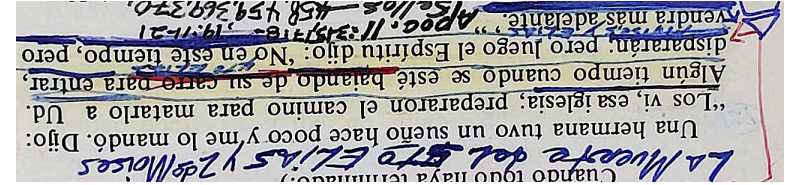 Cuando todo haya
La Muerte del 5to ELIAS y 2do Moises
Una hermana tuvo un sueño hace poco y me lo mandó. Dijo:
“Los vi, esa iglesia; prepararon el camino para matarlo a Ud.
Algún tiempo cuando se esté bajando de su carro para entrar,
dispararán; pero luego el Espíritu dijo: ‘No en este tiempo, pero
vendrá más adelante.’”
Apoc. 11:3-15,7:1-8-,19:11-21
Sellos 458,459,369,370.